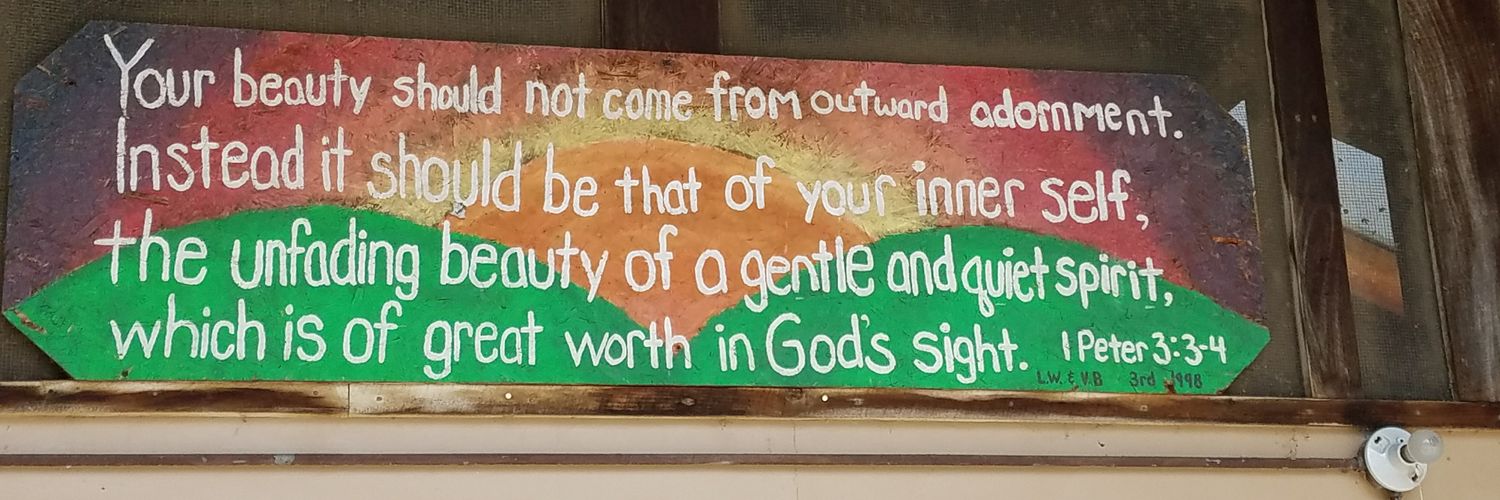 Your beauty should not come from outward adornment.
Instead it should be that of your inner self,
the unfading beauty of a gentle and quiet spirit,
which is of great worth in God's sight. 1 Peter 3:3-4
L.W. & V.B 3rd 1998